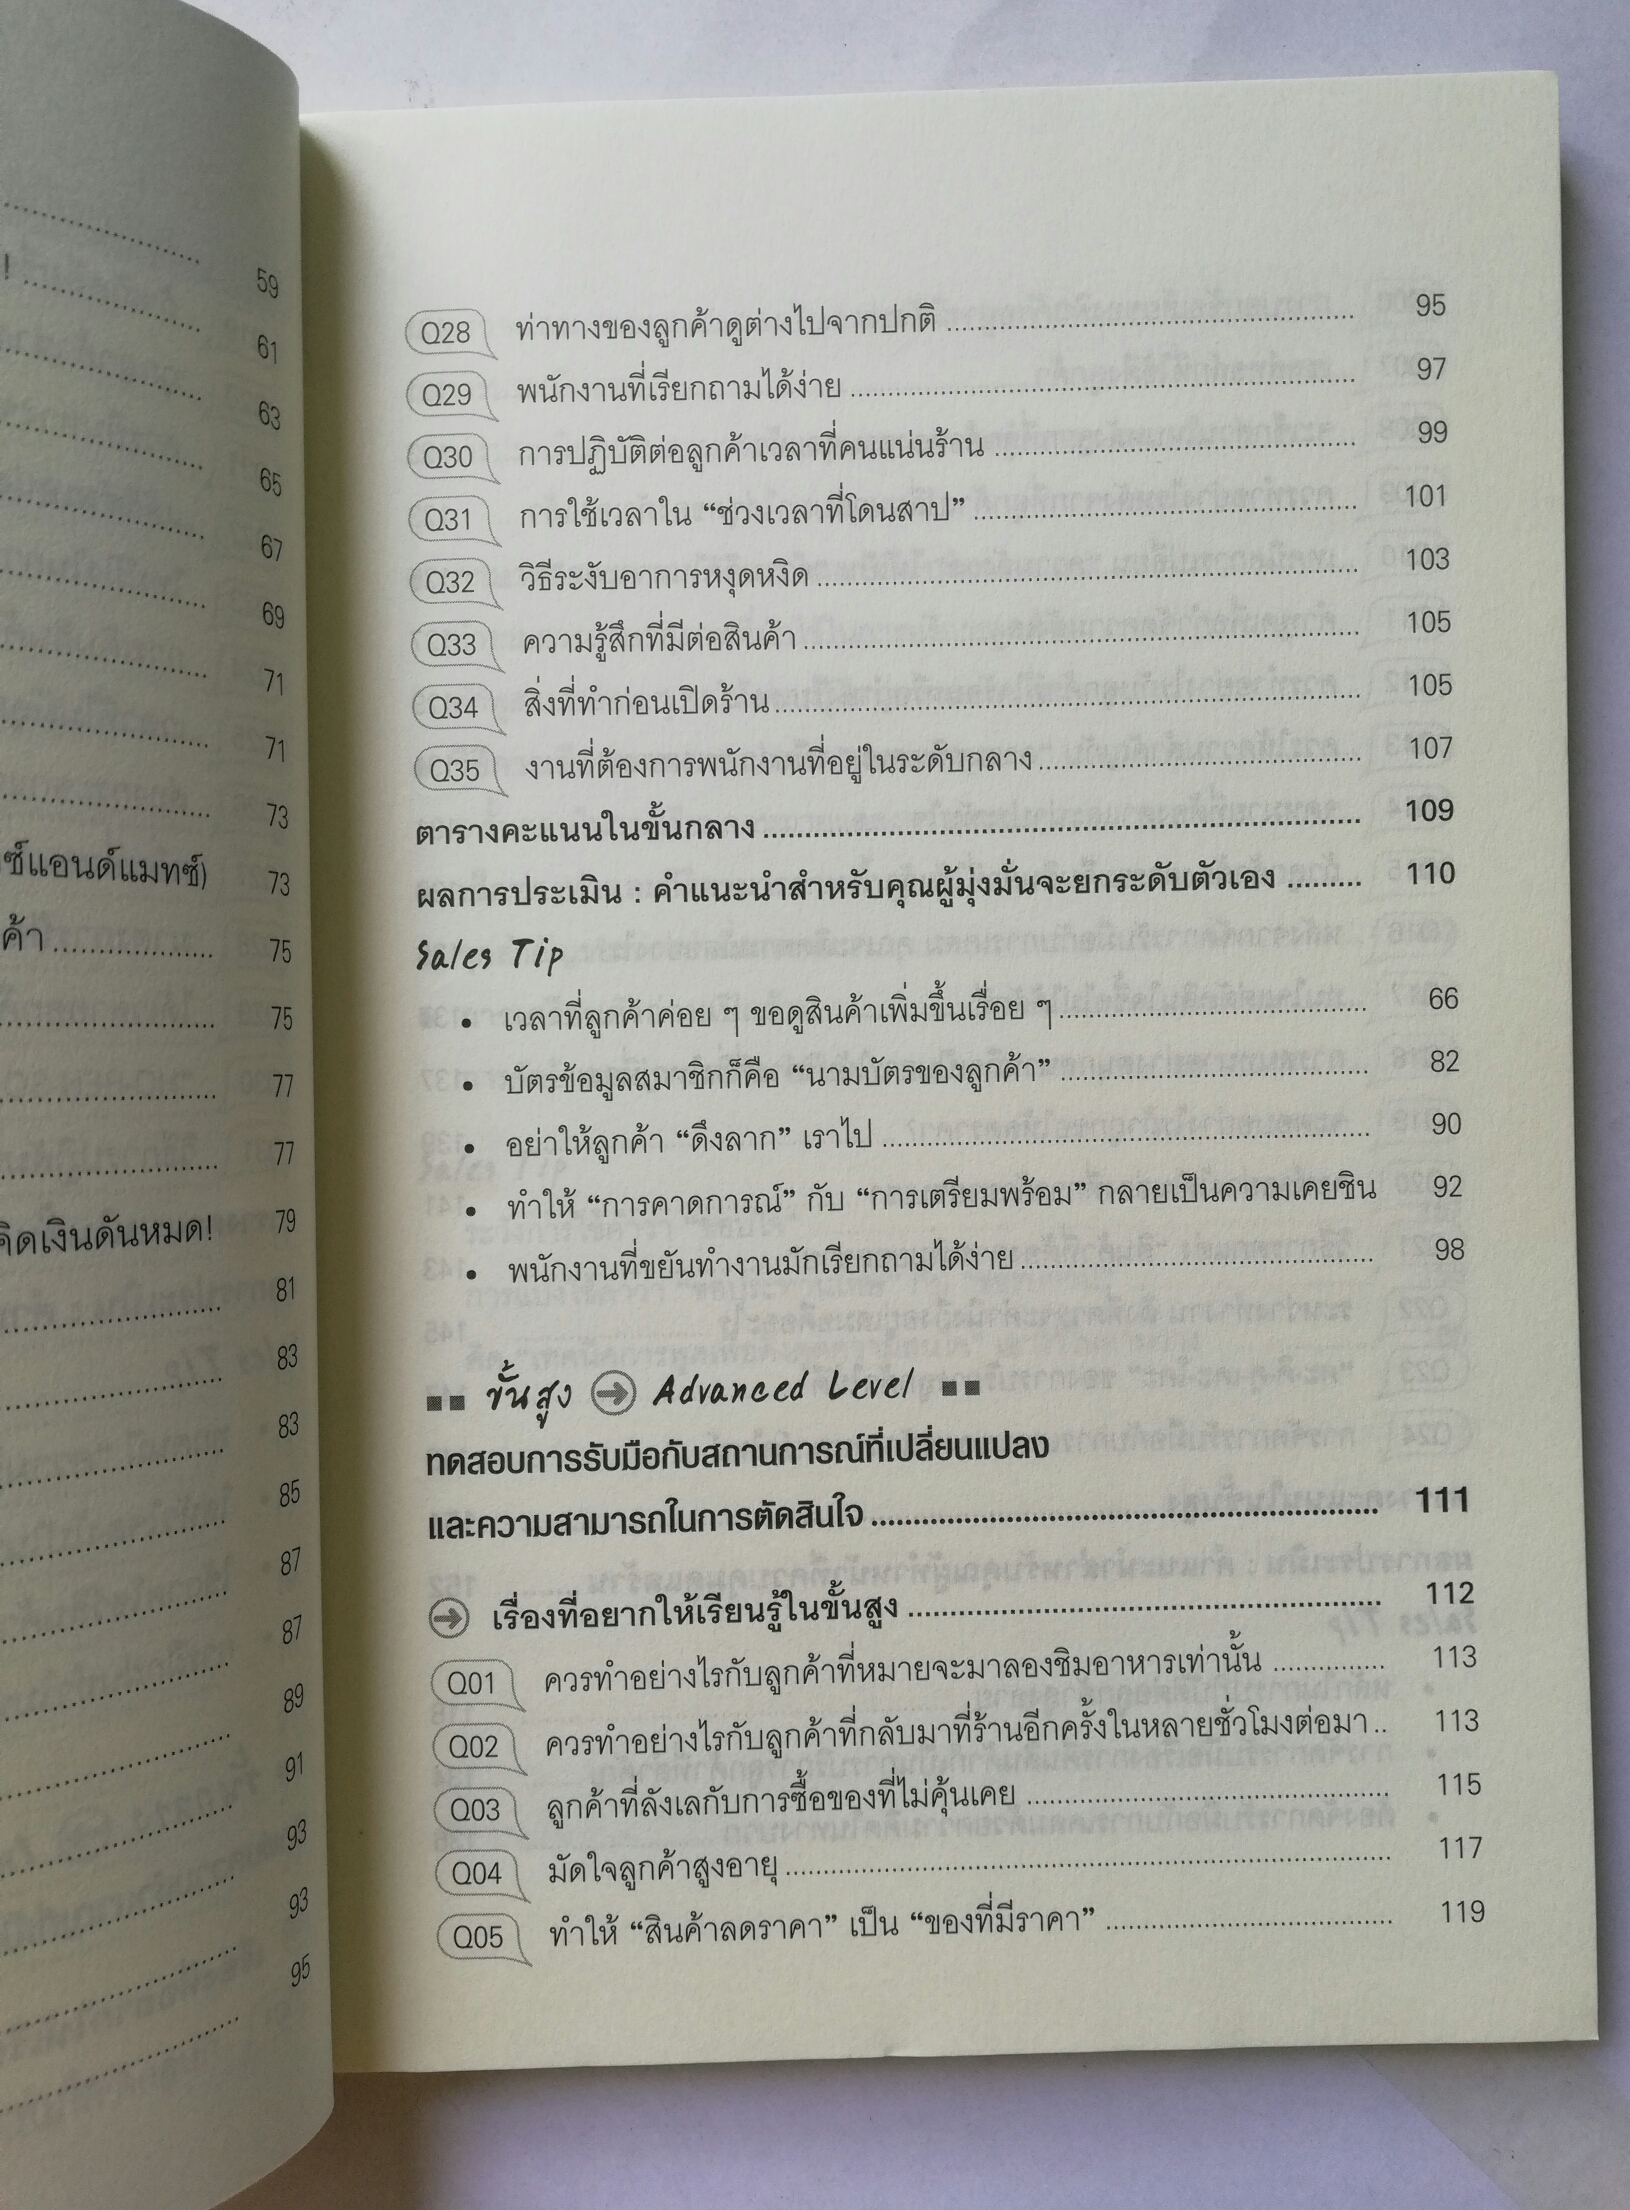 59
!
61
63
65
67
69
71
71
73
ซ์แอนด์แมทซ์) 73
ค้า 75
75
77
77
คิดเงินดันหมด! 79
81
83
83
85
87
87
89
91
93
93
95
Q28 ท่าทางของลูกค้าดูต่างไปจากปกติ 95
Q29 พนักงานที่เรียกถามได้ง่าย 97
Q30 การปฏิบัติต่อลูกค้าเวลาที่คนแน่นร้าน 99
Q31 การใช้เวลาใน “ช่วงเวลาที่โดนสาป” 101
Q32 วิธีระงับอาการหงุดหงิด 103
Q33 ความรู้สึกที่มีต่อสินค้า 105
Q34 สิ่งที่ทำก่อนเปิดร้าน 105
Q35 งานที่ต้องการพนักงานที่อยู่ในระดับกลาง 107
ตารางคะแนนในขั้นกลาง 109
ผลการประเมิน : คำแนะนำสำหรับคุณผู้มุ่งมั่นจะยกระดับตัวเอง 110
Sales Tip
• เวลาที่ลูกค้าค่อย ๆ ขอดูสินค้าเพิ่มขึ้นเรื่อย ๆ 66
• บัตรข้อมูลสมาชิกก็คือ “นามบัตรของลูกค้า” 82
• อย่าให้ลูกค้า “ดึงลาก” เราไป 90
• ทำให้ “การคาดการณ์” กับ “การเตรียมพร้อม” กลายเป็นความเคยชิน 92
• พนักงานที่ขยันทำงานมักเรียกถามได้ง่าย 98
ขั้นสูง Advanced Level
ทดสอบการรับมือกับสถานการณ์ที่เปลี่ยนแปลง
และความสามารถในการตัดสินใจ 111
เรื่องที่อยากให้เรียนรู้ในขั้นสูง 112
Q01 ควรทำอย่างไรกับลูกค้าที่หมายจะมาลองชิมอาหารเท่านั้น 113
Q02 ควรทำอย่างไรกับลูกค้าที่กลับมาที่ร้านอีกครั้งในหลายชั่วโมงต่อมา 113
Q03 ลูกค้าที่ลังเลกับการซื้อของที่ไม่คุ้นเคย 115
Q04 มัดใจลูกค้าสูงอายุ 117
Q05 ทำให้ “สินค้าลดราคา” เป็น “ของที่มีราคา” 119